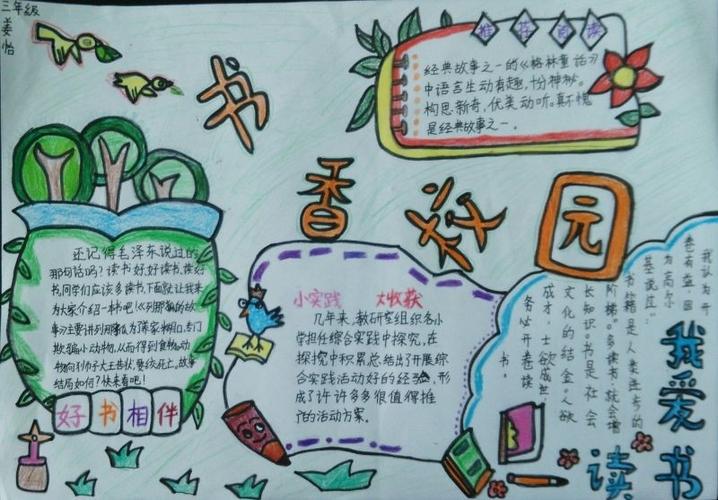 三年级
姜怡
书
香
校
园
推荐阅读
经典故事之一的《格林童话》
中语言生动有趣,十分神秘。
构思新奇,优美动听。真不愧
是经典故事之一。
还记得毛泽东说过的
那句话吗?读书好,好读书,读好
书,同学们应该多读书,下面就让我来
为大家介绍一本书吧!
欺骗小动物,从而得到食物。动
结局如何?快来看吧!
好书相伴
小实践 大收获
几年来,教研室组织各小
学担任综合实践中探究,在
探究中积累总结出了开展综
合实践活动好的经验,形
成了许许多多很值得推
广的活动方案。
我认为开
卷有益,因
为高尔
基说过:“
书籍是人类进步的
阶梯。”多读书,就会增
长知识。书是社会
文化的结金,人欲
成才,士欲成
务必开卷读
书。
我爱
读书